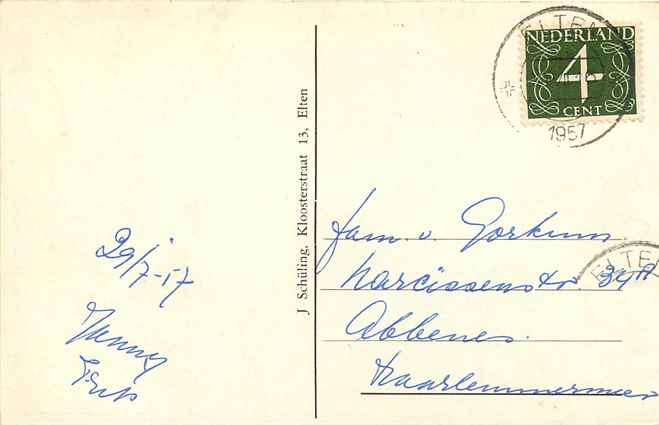 ELTEN
NEDERLAND
4
CENT
1957
J Schüling, Kloosterstraat 13, Elten
29/7-57
Janny
Frits
fam. v. Gorkum
Narcissenstr. 34A
ELTEN
Abbenes
Haarlemmermeer